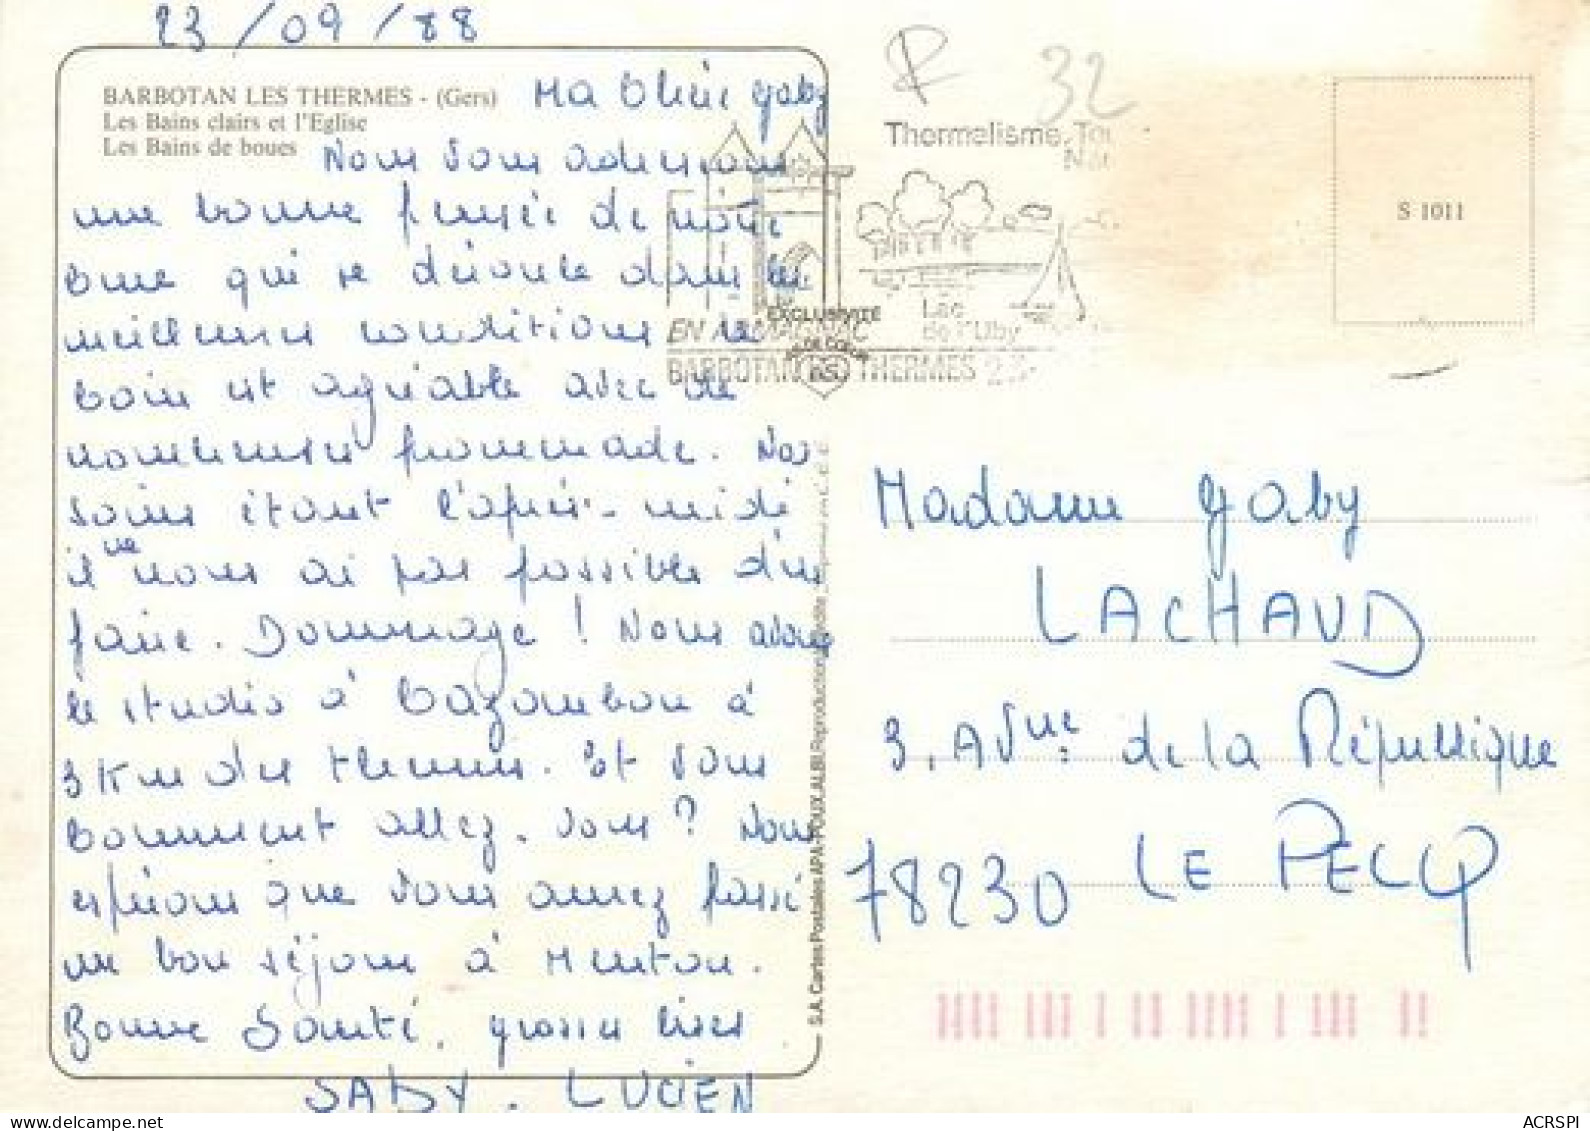 23/09/88
BARBOTAN LES THERMES - (Gers)
Les Bains clairs et l'Eglise
Les Bains de boues
Ma Chère Gaby
Nous vous adressons
une bonne pensée de notre
cure qui se déroule dans les
meilleures conditions le
coin est agréable avec de
nombreuses promenade. Nos
soins étant l'après-midi
il ne nous ai pas possible d'en
faire. Dommage ! Nous avons
le studio à Cazaubon à
3 Km des thermes. Et vous
comment allez-vous ? Nous
espérons que vous aurez passé
un bon séjour à Menton.
Bonne Santé. grosses bises
LUCIEN
32
Thermalisme, Tou
EN ARMAGNAC
Lac
de l'Uby
BARBOTAN THERMES
EXCLUSIVITÉ
AS DE COEUR
S 1011
S.A. Cartes Postales APA-POUX, ALBI Reproduction interdite
Madame Gaby
LACHAUD
3, Avnue de la République
78230 LE PECQ
ACRSPI